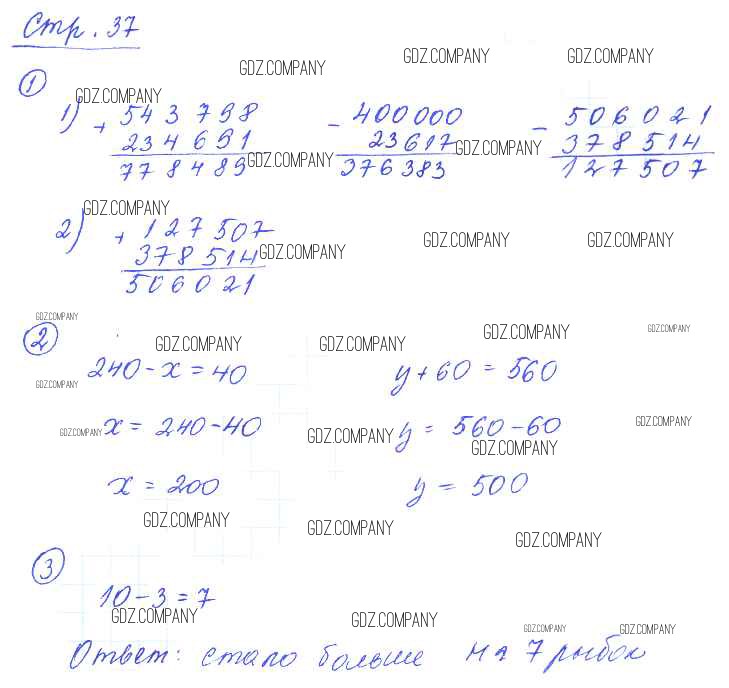 Стр. 37
GDZ.COMPANY GDZ.COMPANY GDZ.COMPANY
1
GDZ.COMPANY
1) + 543798 - 400000 - 506021
234691 23617 378514
GDZ.COMPANY GDZ.COMPANY
778489 376383 127507
GDZ.COMPANY
2) + 127507
378514
GDZ.COMPANY GDZ.COMPANY GDZ.COMPANY
506021
GDZ.COMPANY
2
GDZ.COMPANY GDZ.COMPANY GDZ.COMPANY GDZ.COMPANY
240 - x = 40 y + 60 = 560
GDZ.COMPANY
GDZ.COMPANY x = 240 - 40 GDZ.COMPANY y = 560 - 60 GDZ.COMPANY
GDZ.COMPANY
x = 200 y = 500
GDZ.COMPANY GDZ.COMPANY GDZ.COMPANY
3
10 - 3 = 7
GDZ.COMPANY GDZ.COMPANY GDZ.COMPANY GDZ.COMPANY
Ответ: стало больше на 7 рыбок